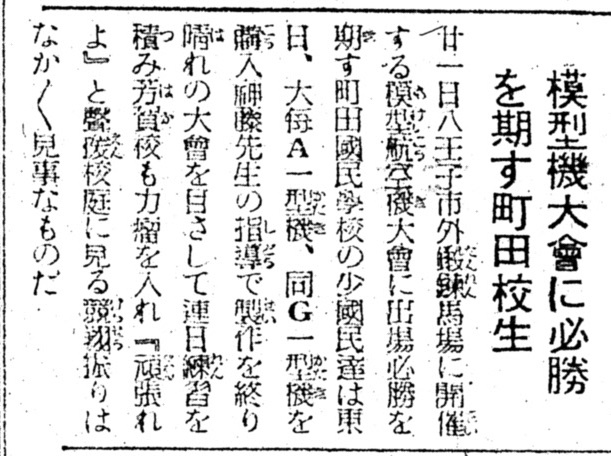 模型機大會に必勝
を期す町田校生
廿一日八王子市外鍛錬馬場に開催
する模型航空機大會に出場必勝を
期す町田國民學校の少國民達は東
日、大毎A一型機、同G一型機を
購入神藤先生の指導で製作を終り
晴れの大會を目さして連日練習を
積み芳賀校も力瘤を入れ『頑張れ
よ』と督校庭に見る競翔振りは
なか〱見事なものだ